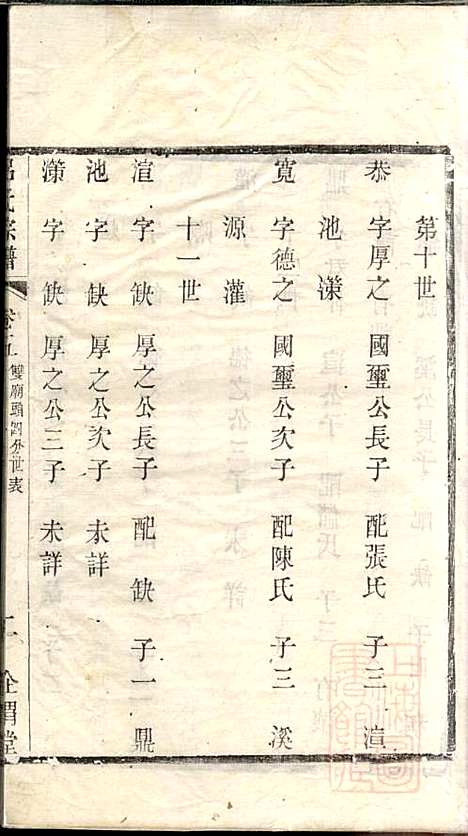 第十世
恭 字厚之 國璽公長子 配張氏 子三 渲
池 濚
寬 字德之 國璽公次子 配陳氏 子三 溪
源 灌
十一世
渲 字缺 厚之公長子 配缺 子一 鼎
池 字缺 厚之公次子 未詳
濚 字缺 厚之公三子 未詳
呂氏宗譜
雙廟頭四分世表
渭堂